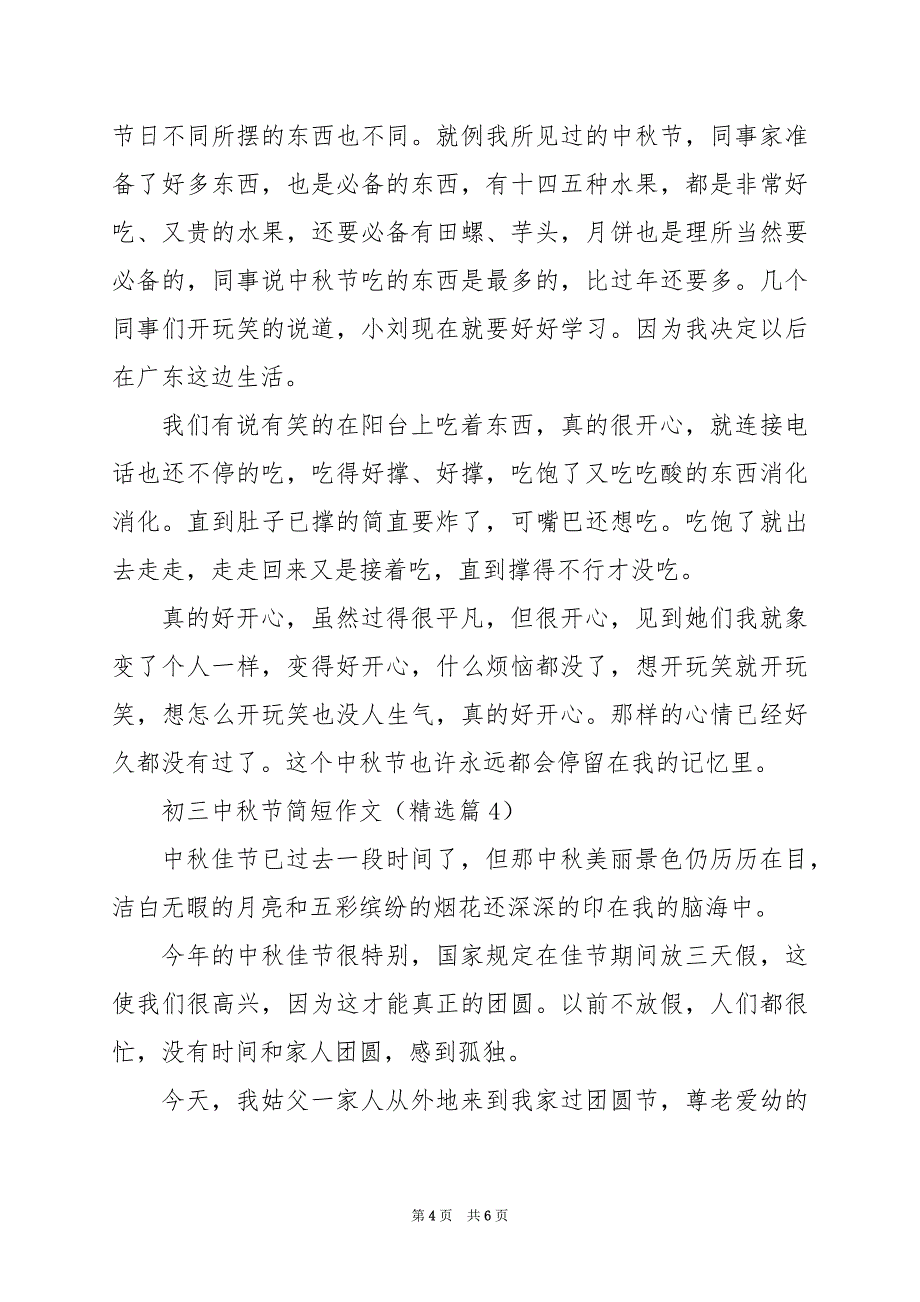 节日不同所摆的东西也不同。就例我所见过的中秋节，同事家准
备了好多东西，也是必备的东西，有十四五种水果，都是非常好
吃、又贵的水果，还要必备有田螺、芋头，月饼也是理所当然要
必备的，同事说中秋节吃的东西是最多的，比过年还要多。几个
同事们开玩笑的说道，小刘现在就要好好学习。因为我决定以后
在广东这边生活。
我们有说有笑的在阳台上吃着东西，真的很开心，就连接电
话也还不停的吃，吃得好撑、好撑，吃饱了又吃吃酸的东西消化
消化。直到肚子已撑的简直要炸了，可嘴巴还想吃。吃饱了就出
去走走，走走回来又是接着吃，直到撑得不行才没吃。
真的好开心，虽然过得很平凡，但很开心，见到她们我就象
变了个人一样，变得好开心，什么烦恼都没了，想开玩笑就开玩
笑，想怎么开玩笑也没人生气，真的好开心。那样的心情已经好
久都没有过了。这个中秋节也许永远都会停留在我的记忆里。
初三中秋节简短作文（精选篇4）
中秋佳节已过去一段时间了，但那中秋美丽景色仍历历在目，
洁白无暇的月亮和五彩缤纷的烟花还深深的印在我的脑海中。
今年的中秋佳节很特别，国家规定在佳节期间放三天假，这
使我们很高兴，因为这才能真正的团圆。以前不放假，人们都很
忙，没有时间和家人团圆，感到孤独。
今天，我姑父一家人从外地来到我家过团圆节，尊老爱幼的
第4页 共6页